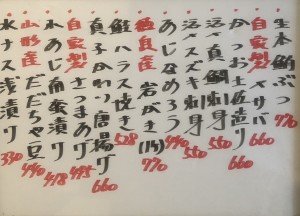 生本鮪ぶつ
自家製〆サバ 660
かつお土佐造り 660
活〆真鯛刺身 550
活スズキ刺身 550
あじなめろう 440
徳島産岩がき(1ヶ) 770
鮭ハラス焼き 528
真子がれい唐揚げ 660
自家製さつまあげ 495
水あじ南蛮漬け 418
山形産だだちゃ豆 440
水ナス浅漬け 330